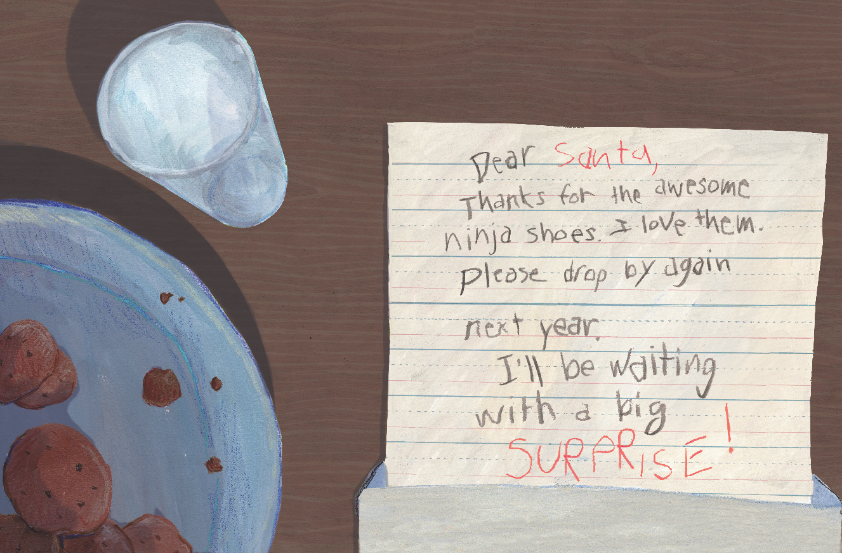 Dear Santa,
Thanks for the awesome
ninja shoes. I love them.
Please drop by again
next year.
I'll be waiting
with a big
SURPRISE!